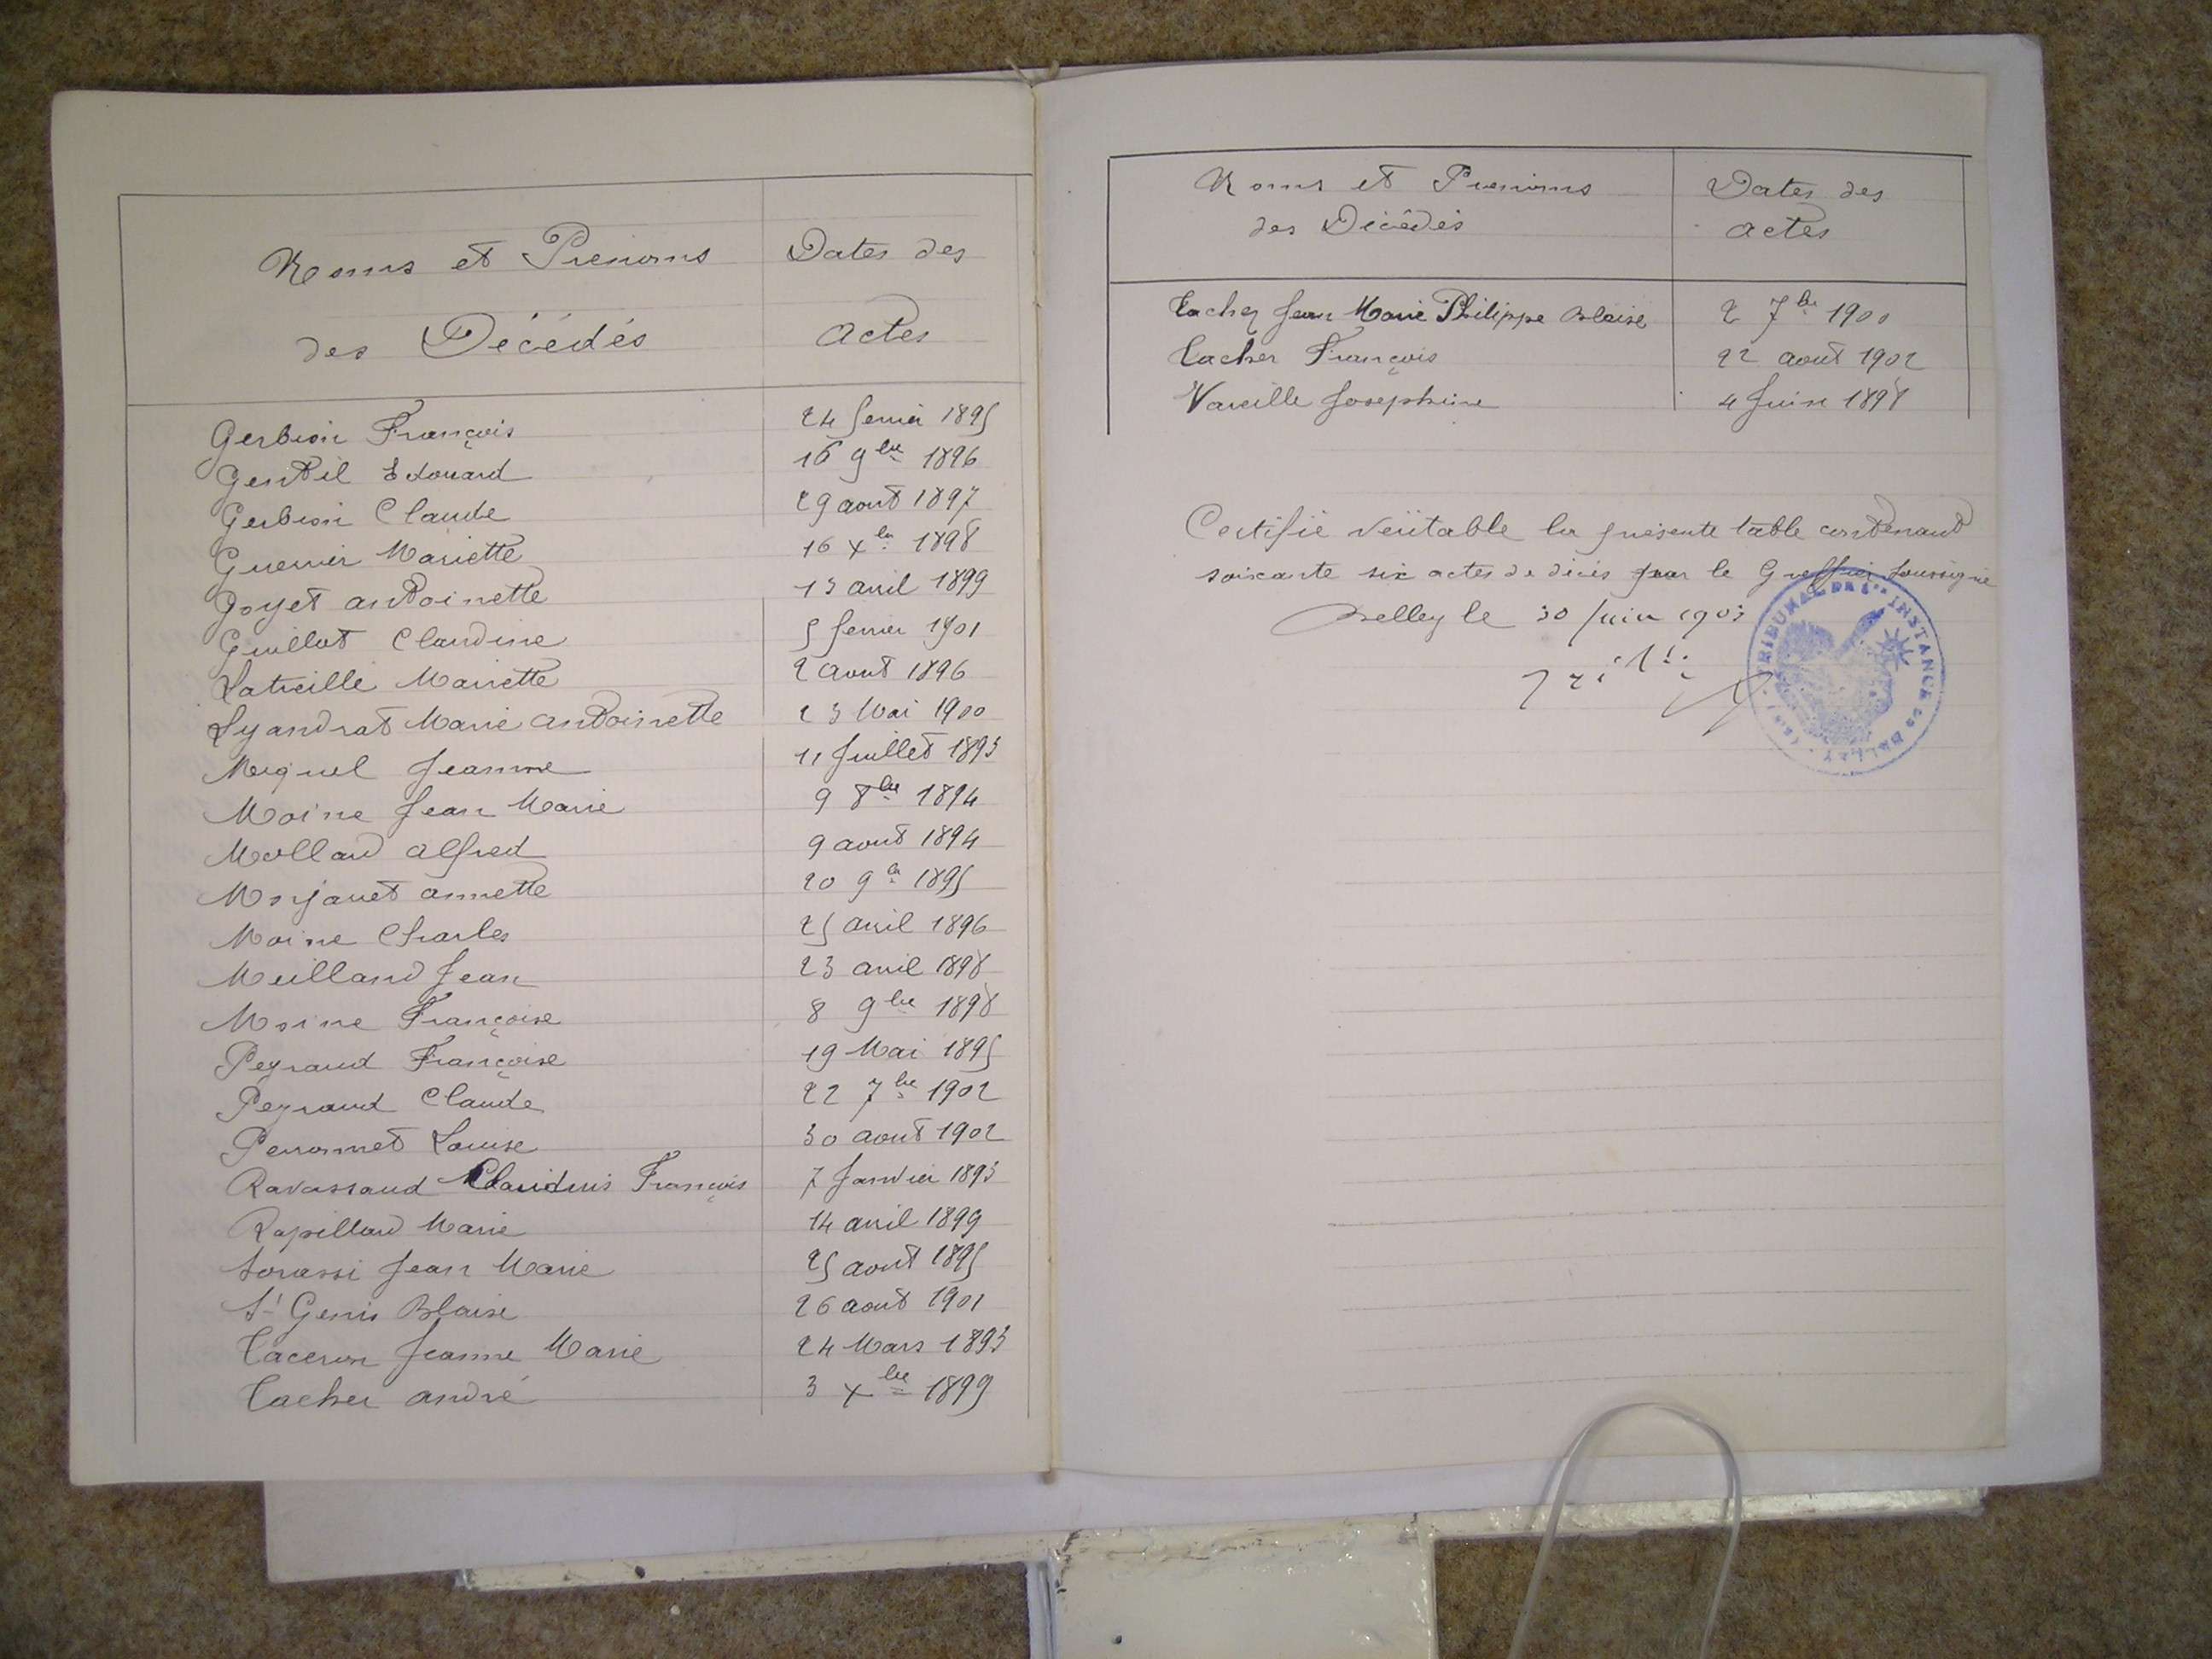 Noms et Prenoms
des Décédés
Dates des
actes
Gerbion François 24 fevrier 1895
Gentil Edouard 16 9bre 1896
Gerbion Claude 29 aout 1897
Guerrier Mariette 16 Xbre 1898
Goyet antoinette 13 avril 1899
Guillot Claudine 5 fevrier 1901
Latreille Mariette 2 aout 1896
Lyandrat Marie antoinette 23 Mai 1900
Miguel Jeanne 11 Juillet 1893
Moine Jean Marie 9 8bre 1894
Mollard alfred 9 aout 1894
Monjanet annette 20 9bre 1895
Moine Charles 25 avril 1896
Meilland Jean 23 avril 1898
Moine Françoise 8 9bre 1898
Peyraud Françoise 19 Mai 1895
Peyraud Claude 22 7bre 1902
Perronnet Louise 30 aout 1902
Ravassaud Claudius François 7 Janvier 1893
Rapillard Marie 14 avril 1899
Sorassi Jean Marie 25 aout 1895
St Genis Blaise 26 aout 1901
Taceron Jeanne Marie 24 Mars 1893
Tacher andré 3 Xbre 1899
Noms et Prenoms
des Décédés
Dates des
actes
Tacher Jean Marie Philippe Blaise 2 7bre 1900
Tacher François 22 aout 1902
Vareille Josephine 4 Juin 1898
Certifié véritable la présente table contenant
soixante six actes de décès par le Greffier soussigné
Belley le 30 Juin 1903
TRIBUNAL DE 1re INSTANCE DE BELLEY (AIN)